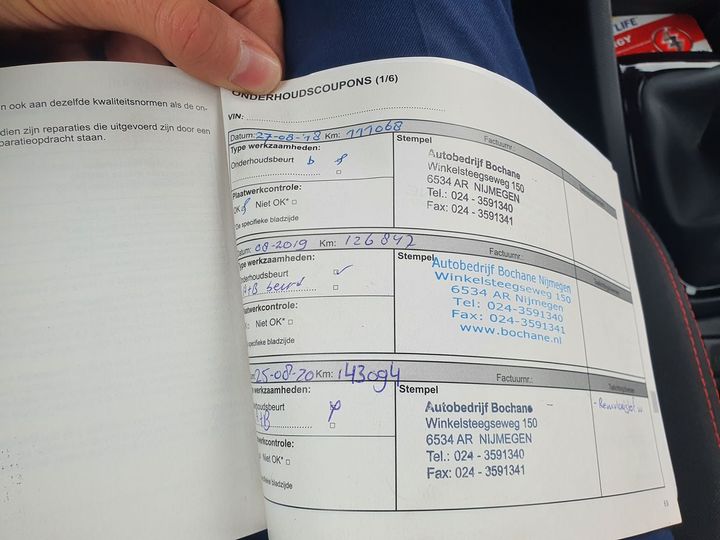 n ook aan dezelfde kwaliteitsnormen als de on-
dien zijn reparaties die uitgevoerd zijn door een
paratieopdracht staan.
ONDERHOUDSCOUPONS (1/6)
VIN:
Datum: 27-08-'18 Km: 111068 Factuurnr.:
Type werkzaamheden:
Onderhoudsbeurt b
Plaatwerkcontrole:
OK Niet OK*
De specifieke bladzijde
Stempel
Autobedrijf Bochane
Winkelsteegseweg 150
6534 AR NIJMEGEN
Tel.: 024 - 3591340
Fax: 024 - 3591341
atum: 08-2019 Km: 126842 Factuurnr.:
ype werkzaamheden:
nderhoudsbeurt
A+B beurt
aatwerkcontrole:
Niet OK*
e specifieke bladzijde
Stempel
Autobedrijf Bochane Nijmegen
Winkelsteegseweg 150
6534 AR Nijmegen
Tel: 024-3591340
Fax: 024-3591341
www.bochane.nl
25-08-20 Km: 143094 Factuurnr.:
werkzaamheden:
houdsbeurt
A+B
werkcontrole:
Niet OK*
ecifieke bladzijde
Stempel
Autobedrijf Bochane
Winkelsteegseweg 150
6534 AR NIJMEGEN
Tel.: 024 - 3591340
Fax: 024 - 3591341
LIFE
RGY